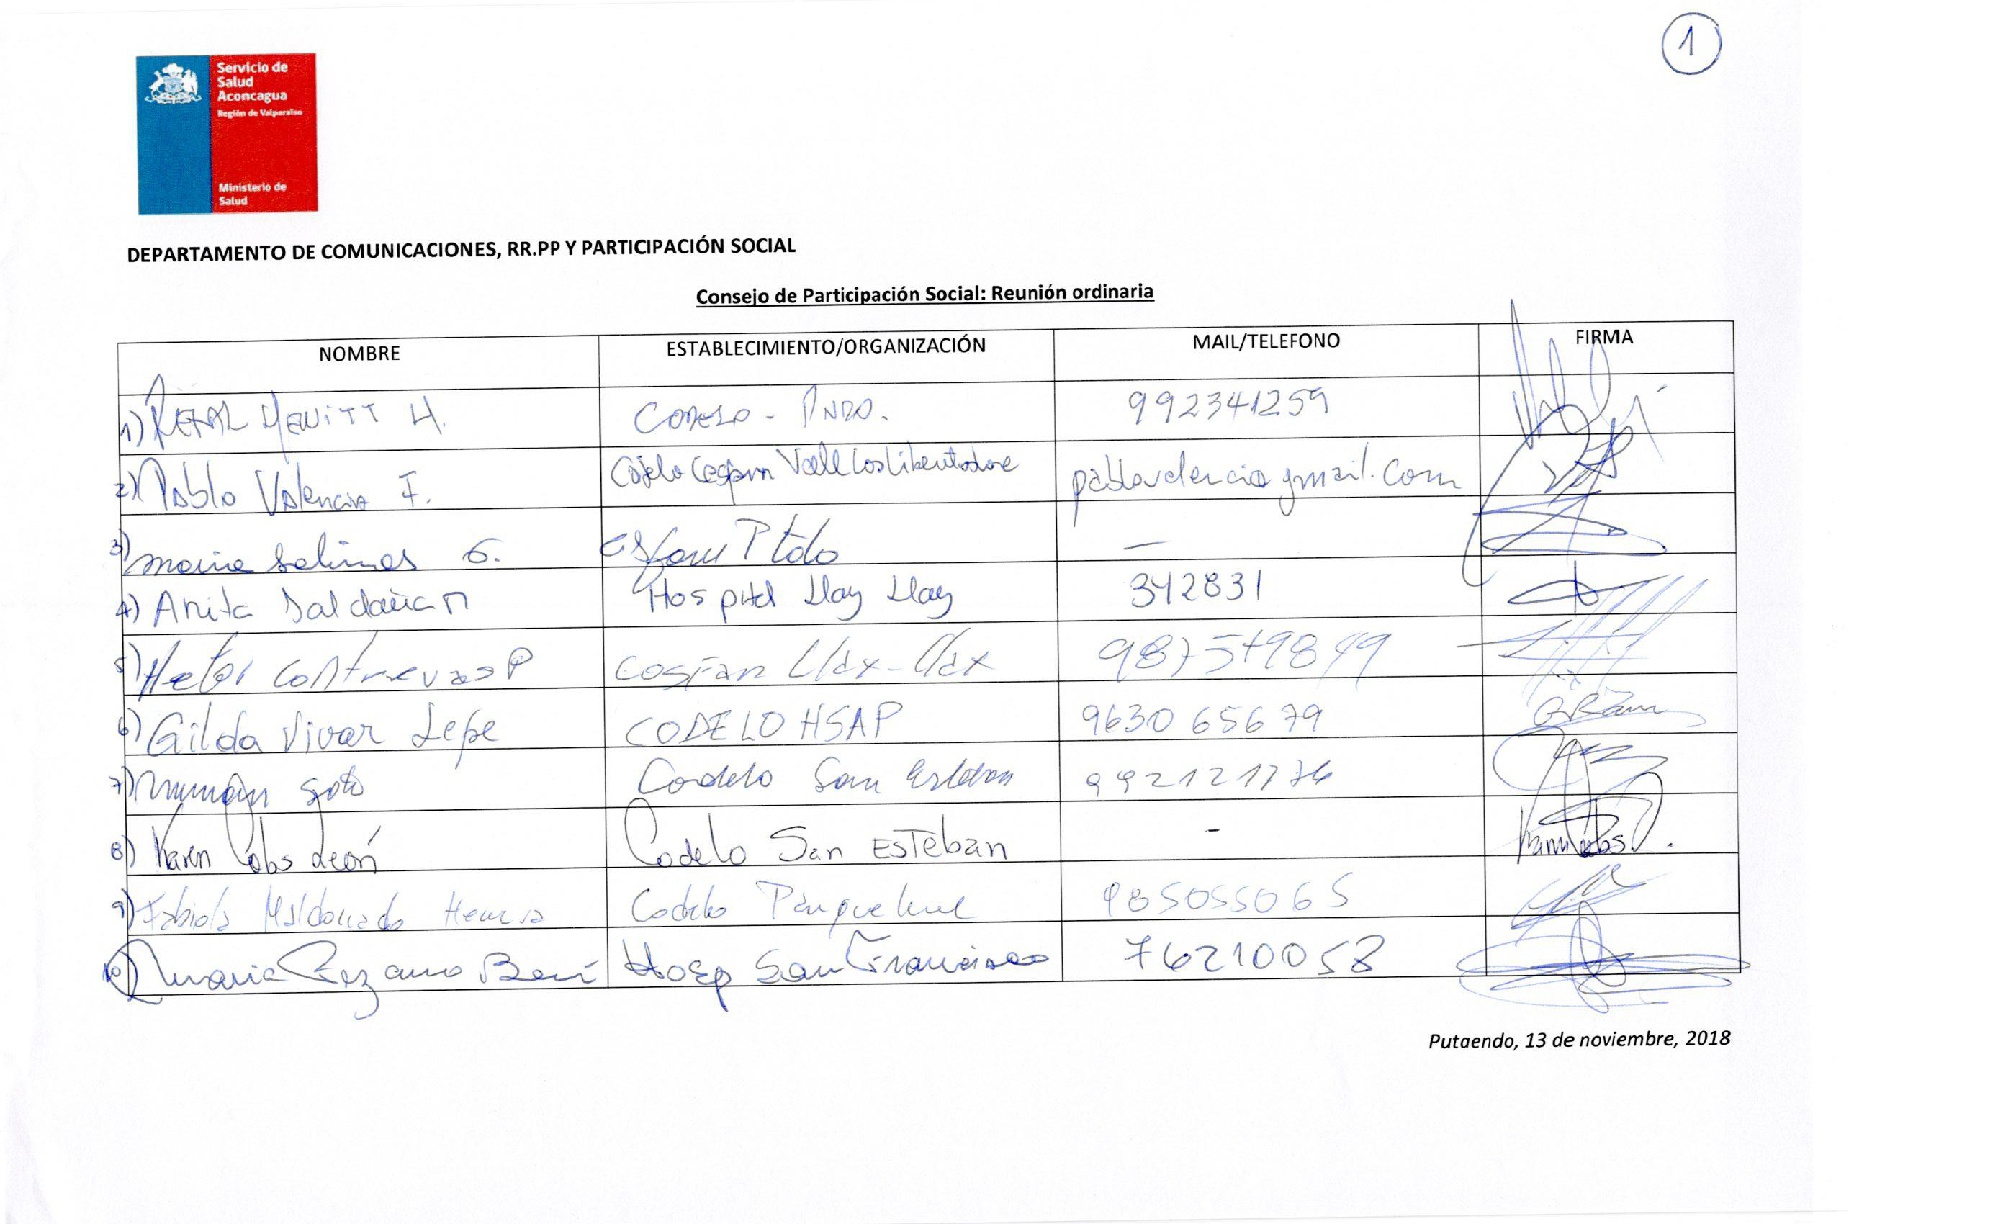 1
Servicio de
Salud
Aconcagua
Región de Valparaíso
Ministerio de
Salud
DEPARTAMENTO DE COMUNICACIONES, RR.PP Y PARTICIPACIÓN SOCIAL
Consejo de Participación Social: Reunión ordinaria
NOMBRE ESTABLECIMIENTO/ORGANIZACIÓN MAIL/TELEFONO FIRMA
1) HEWITT H. CODELO - PNDO. 992341259
2) Pablo Valencia F. Codelo Cesfam Valle Los Libertadores
3) Maria Salinas G. Ptdo —
4) Anita Saldaña M Hospital Llay Llay 342831
5) Hector Contreras P COSFAN Llay-Llay
6) Gilda Vivar Lepe CODELO HSAP 963065679
7) Soto Condelo San Esteban 992121776
8) Karen Cobs León Codelo San ESTeban -
9) Fabiola Maldonado Codelo Panquehue 985055065
10) Maria Hosp San Francisco 76210058
Putaendo, 13 de noviembre, 2018